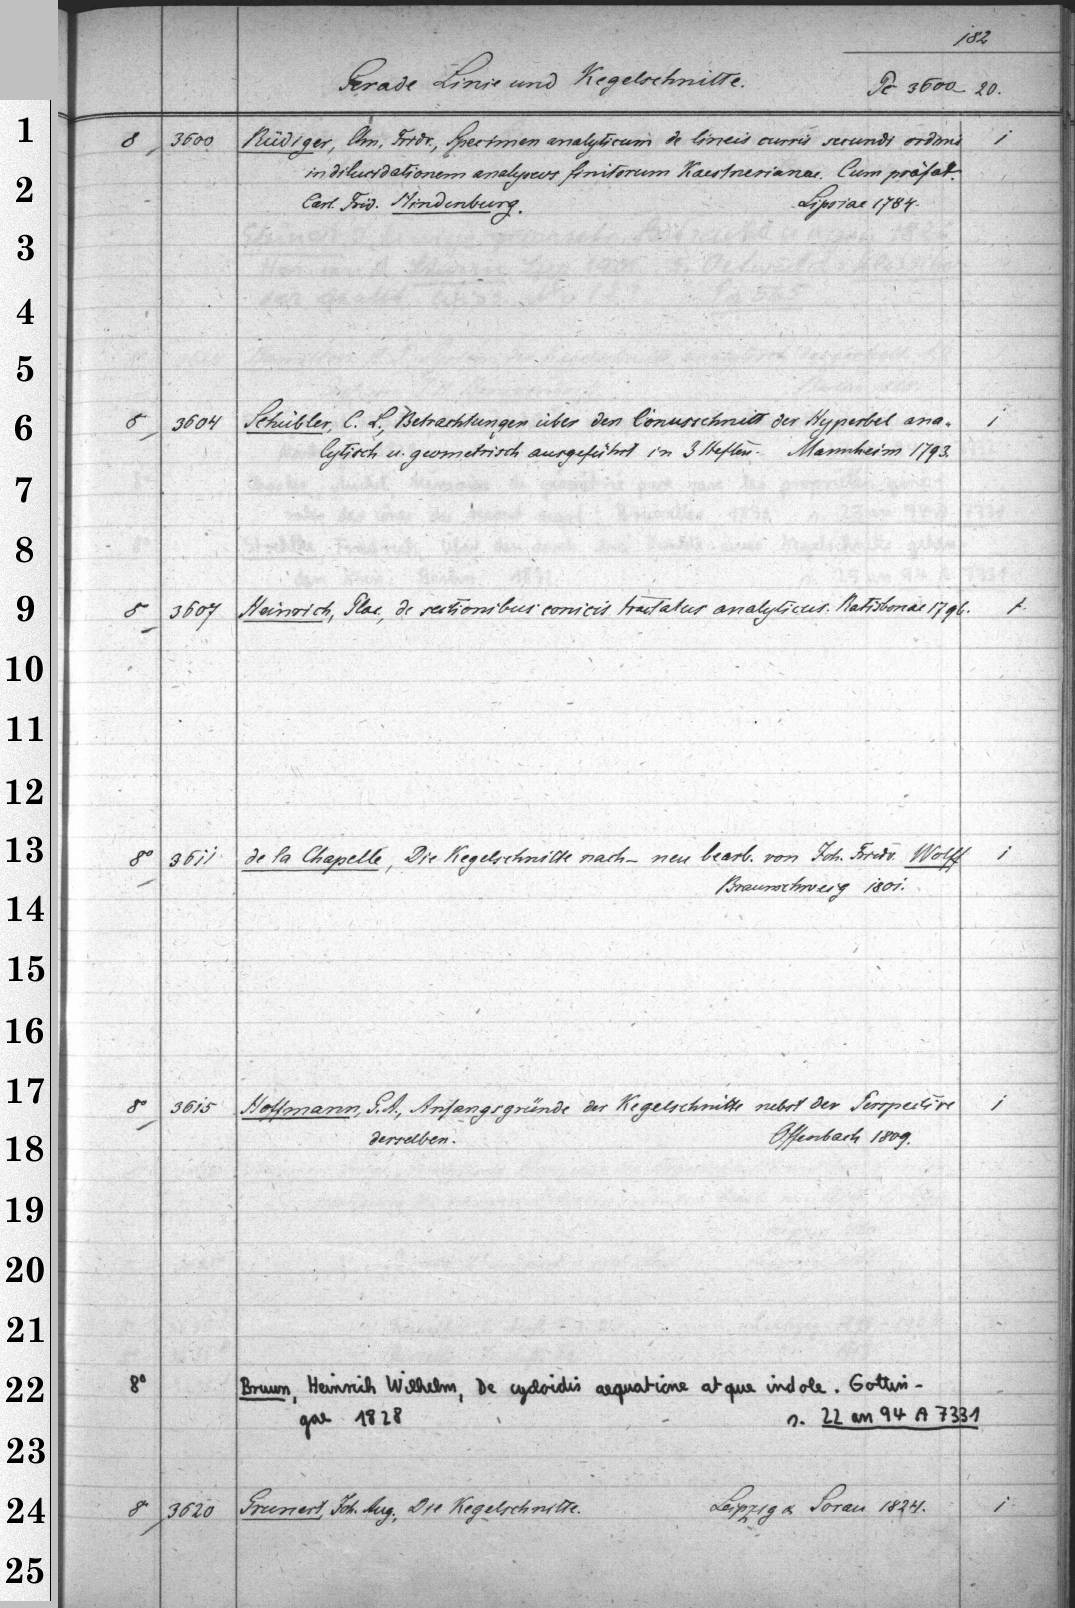 182
Gerade Linie und Kegelschnitte. Pc 3600 20.
1
8 3600 Rüdiger, Chn. Fridr., Specimen analyticum de lineis curvis secundi ordinis i
in dilucidationem analyseos finitorum Kaestnerianae. Cum präfat.
2
Carl. Frid. Hindenburg. Lipsiae 1784.
3
4
5
6
8 3604 Schübler, C. L., Betrachtungen über den Conusschnitt der Hyperbel ana- i
lytisch u. geometrisch ausgeführt in 3 Heften. Mannheim 1793.
7
8
9
8 3607 Heinrich, Plac, de sectionibus conicis tractatus analyticus. Ratisbonae 1796.
10
11
12
13
8° 3611 de la Chapelle, Die Kegelschnitte nach – neu bearb. von Joh. Friedr. Wolff i
Braunschweig 1801.
14
15
16
17
8° 3615 Hoffmann, G. A., Anfangsgründe der Kegelschnitte nebst der Perspective i
derselben. Offenbach 1809.
18
19
20
21
22
8° Bruun, Heinrich Wilhelm, De cycloidis aequatione atque indole. Gottin-
gae 1828 n. 22 an 94 A 7331
23
24
8° 3620 Grunert, Joh. Aug., Die Kegelschnitte. Leipzig & Sorau 1824. i
25